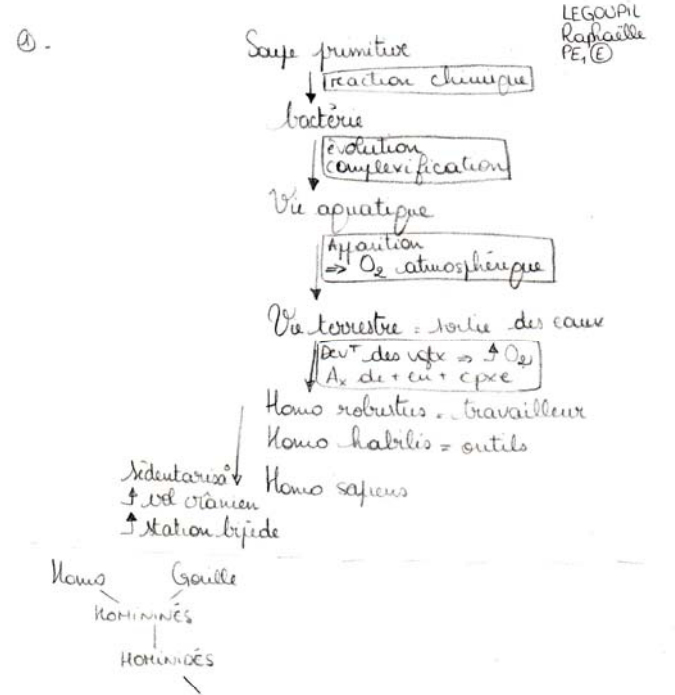 LEGOUPIL
Raphaëlle
PE1 E
1.
Soupe primitive
réaction chimique
bactérie
évolution
complexification
Vie aquatique
Apparition
⇒ O2 atmosphérique
Vie terrestre = sortie des eaux
Devt des vgtx ⇒ ↑ O2
Ax de + en + cpxe
Homo robustus = travailleur
Homo habilis = outils
Homo sapiens
sédentariso
↑ vol crânien
↑ station bipède
Homo Gorille
HOMININÉS
HOMINIDÉS